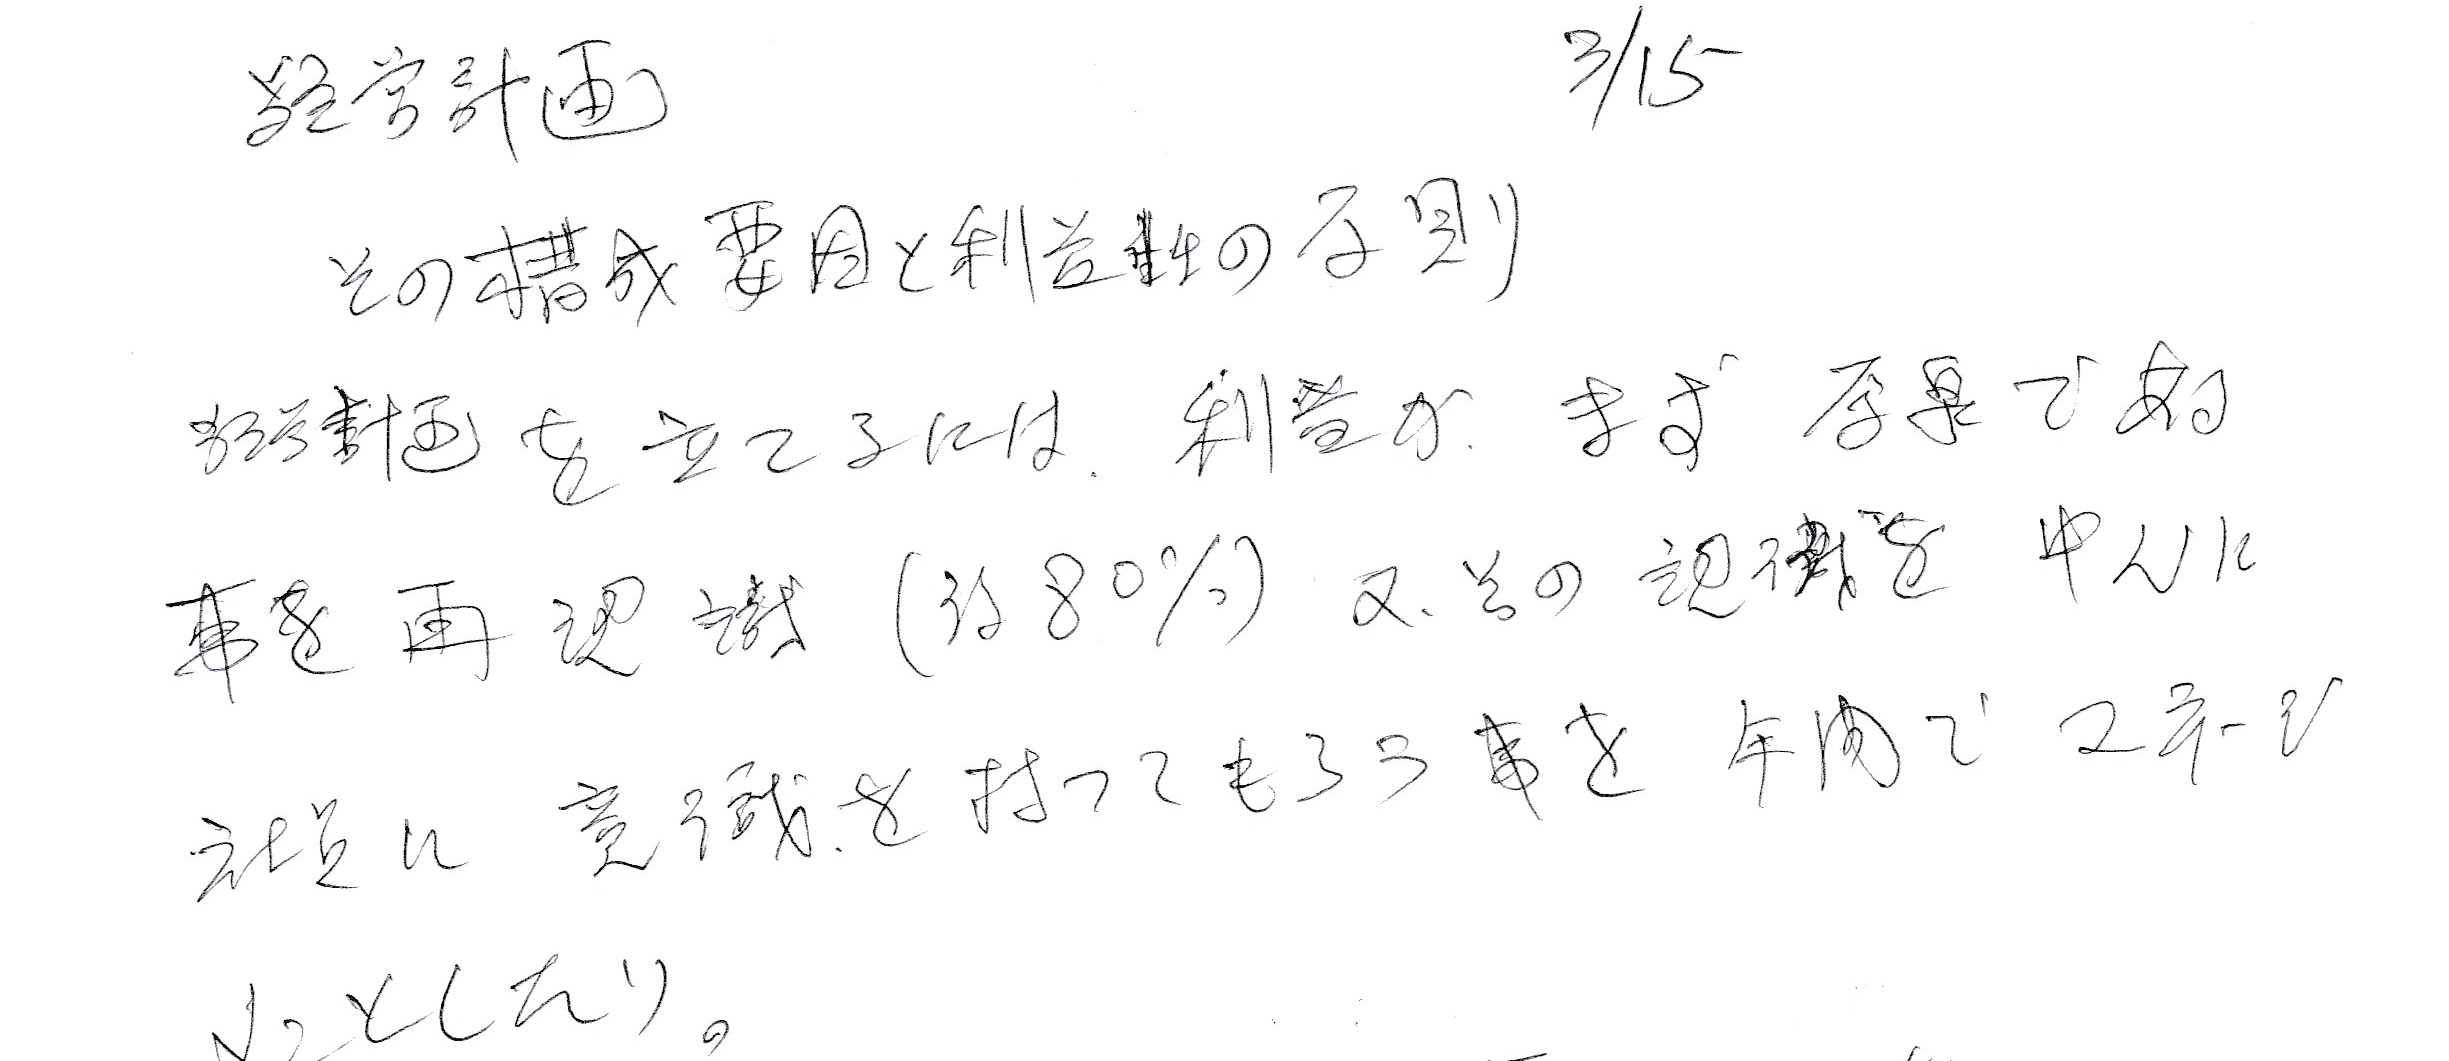 経営計画 3/15
その構成要因と利益性の原則
経営計画を立てるには、利益が、まず原泉である
事を再認識(約80%)又、その認識を中心に
社員に意識を持ってもらう事を年間で
としたい。